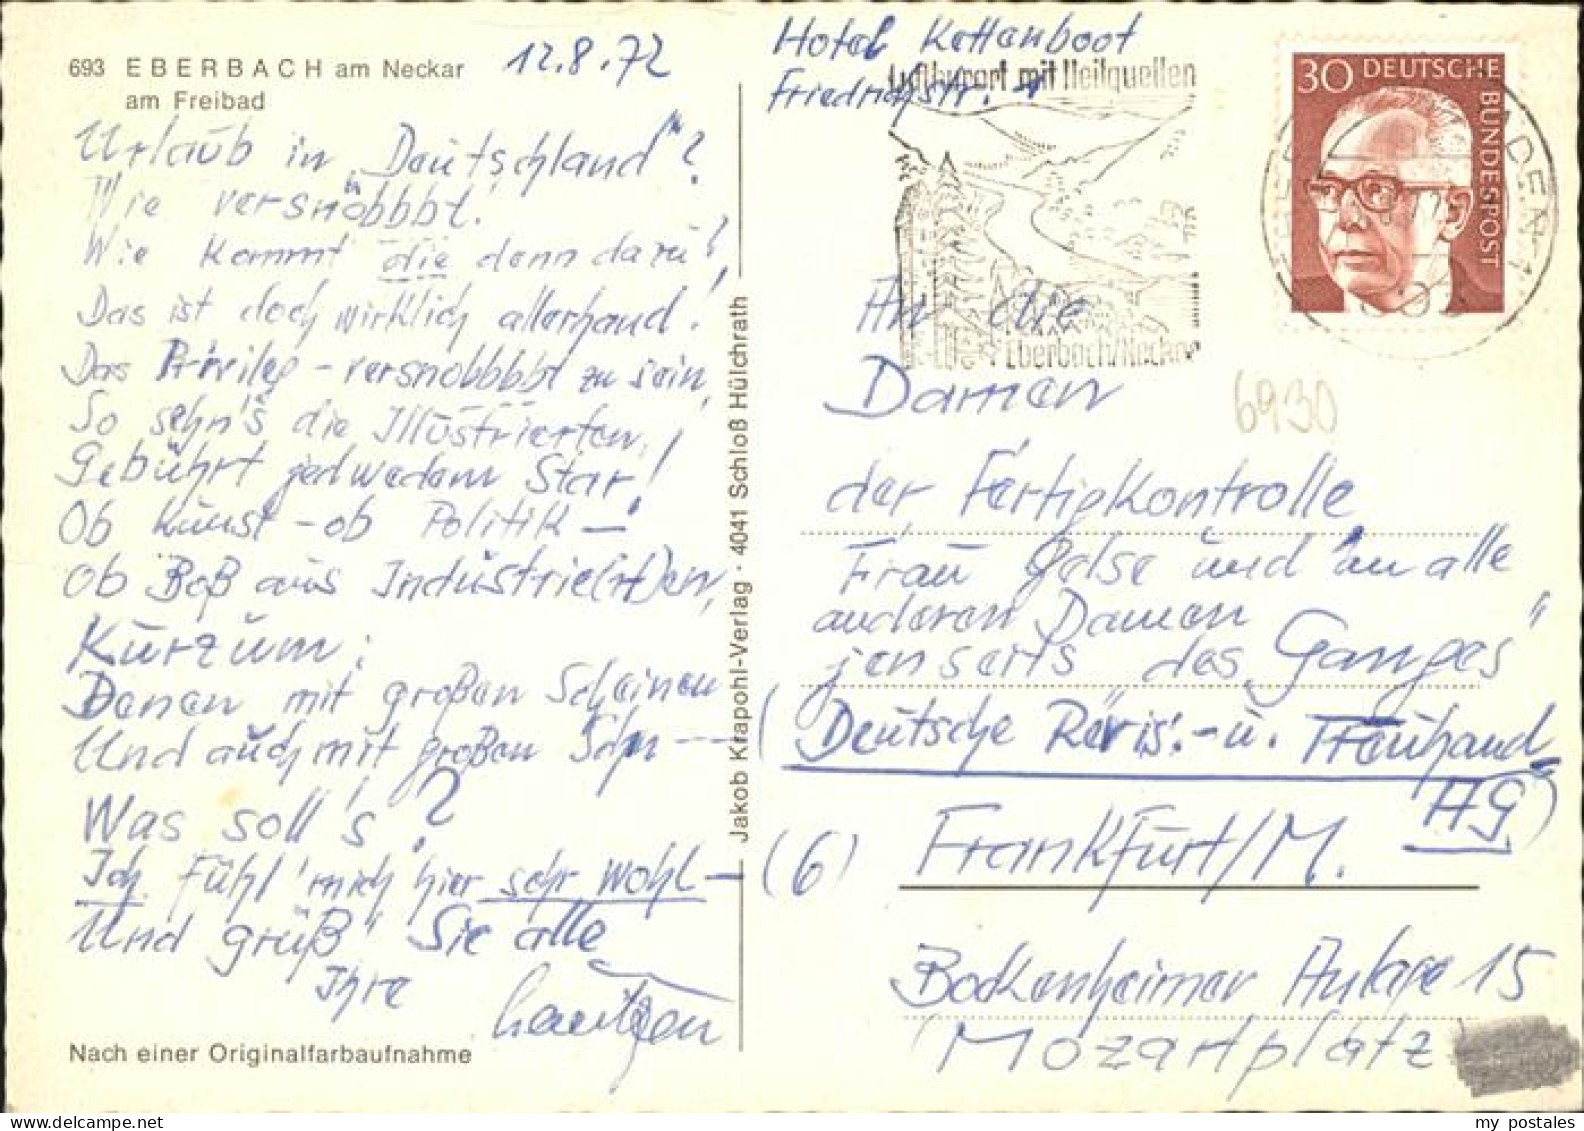 693 EBERBACH am Neckar
am Freibad
12.8.72
Urlaub in „Deutschland"?
Wie versnöbbbt!
Wie kommt die denn dazu!
Das ist doch wirklich allerhand!
Das Privileg - versnobbbbt zu sein,
So sehn's die Illustrierten,
Gebührt jedwedem Star!
Ob Kunst - ob Politik -!
Ob Boß aus Industrie(rt)en,
Kurzum:
Denen mit großen Scheinen
Und auch mit großen Schn---
Was soll's?
Ich fühl' mich hier sehr wohl -
Und grüß' Sie alle
Ihre
Nach einer Originalfarbaufnahme
Jakob Krapohl-Verlag · 4041 Schloß Hülchrath
Hotel Kettenboot
Friedrichstr. 1
Luftkurort mit Heilquellen
Eberbach/Neckar
30 DEUTSCHE
BUNDESPOST
6930
An die
Damen
der Fertigkontrolle
Frau und an alle
anderen Damen
jenseits des „Ganges"
(Deutsche Revis.- u. Treuhand
AG)
(6) Frankfurt/M.
Bockenheimer Anlage 15
(Mozartplatz
my postales